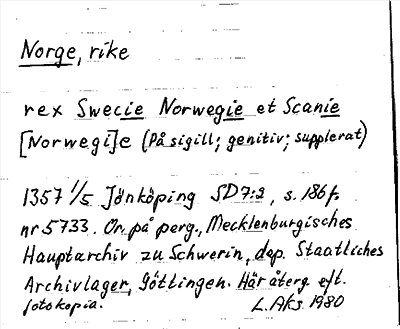 Norge, rike
rex Swecie Norwegie et Scanie
[Norwegi]e (På sigill; genitiv; supplerat)
1357 1/5 Jönköping SD 7:2, s. 186 f.
nr 5733. Or. på perg., Mecklenburgisches
Hauptarchiv zu Schwerin, dep. Staatliches
Archivlager, Göttingen. Här återg. eft.
fotokopia. L. Aks 1980